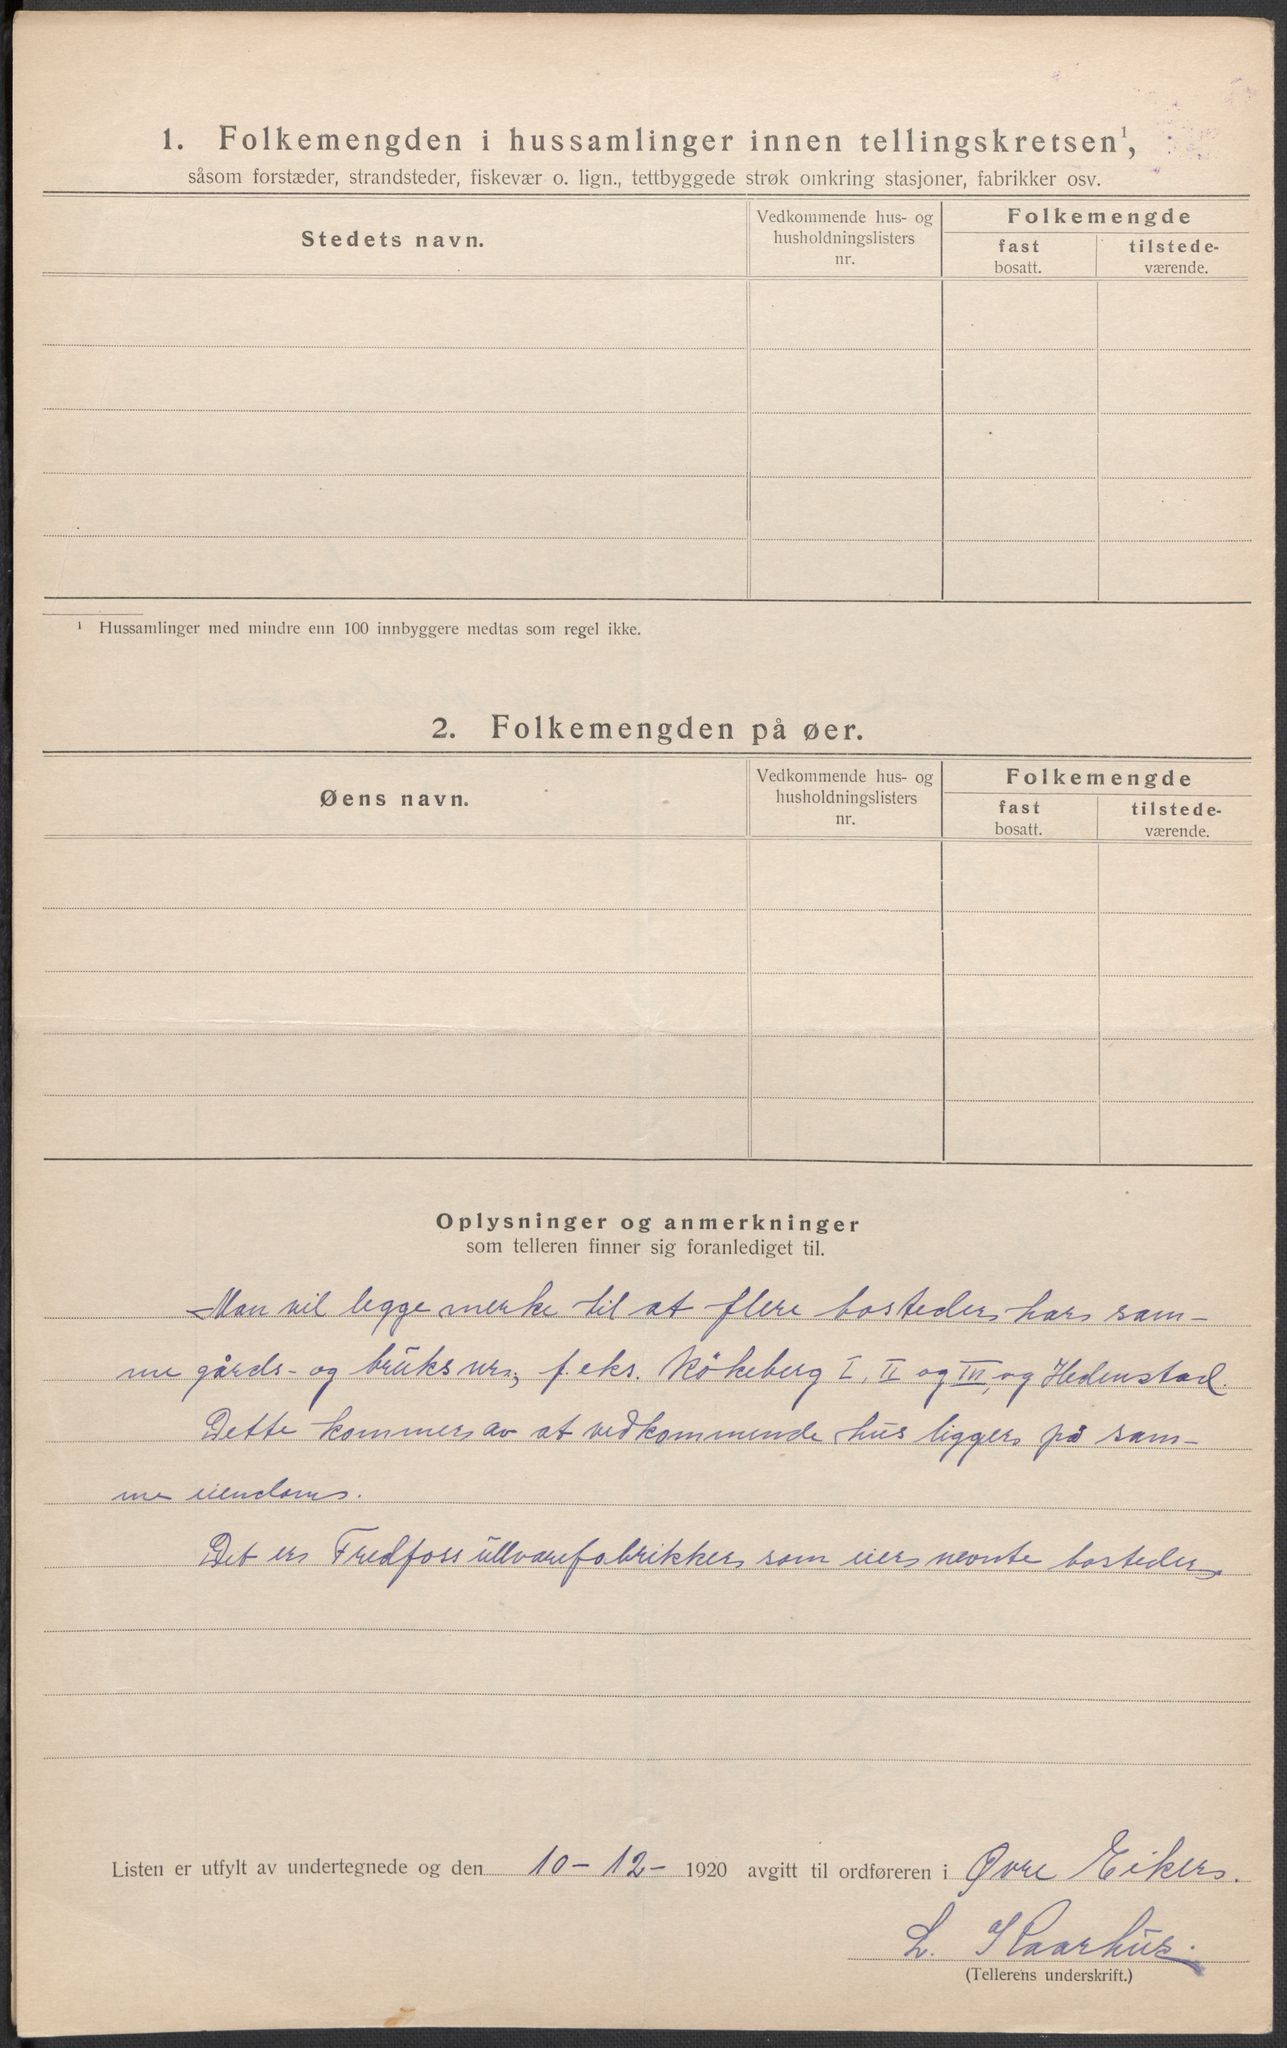 1. Folkemengden i hussamlinger innen tellingskretsen¹,
såsom forstæder, strandsteder, fiskevær o. lign., tettbyggede strøk omkring stasjoner, fabrikker osv.
Stedets navn.
Vedkommende hus- og
husholdningslisters
nr.
Folkemengde
fast
bosatt.
tilstede-
værende.
¹ Hussamlinger med mindre enn 100 innbyggere medtas som regel ikke.
2. Folkemengden på øer.
Øens navn.
Vedkommende hus- og
husholdningslisters
nr.
Folkemengde
fast
bosatt.
tilstede-
værende.
Oplysninger og anmerkninger
som telleren finner sig foranlediget til.
Man vil legge merke til at flere bosteder har sam-
me gårds- og bruksnr., f. eks. Kökeberg I, II og III, og Hedenstad.
Dette kommer av at vedkommende hus ligger på sam-
me eiendom.
Det er Fredfoss ullvarefabrikker som eier nevnte bosteder
Listen er utfylt av undertegnede og den 10-12- 1920 avgitt til ordføreren i Øvre Eiker.
L. Skaarhus.
(Tellerens underskrift.)